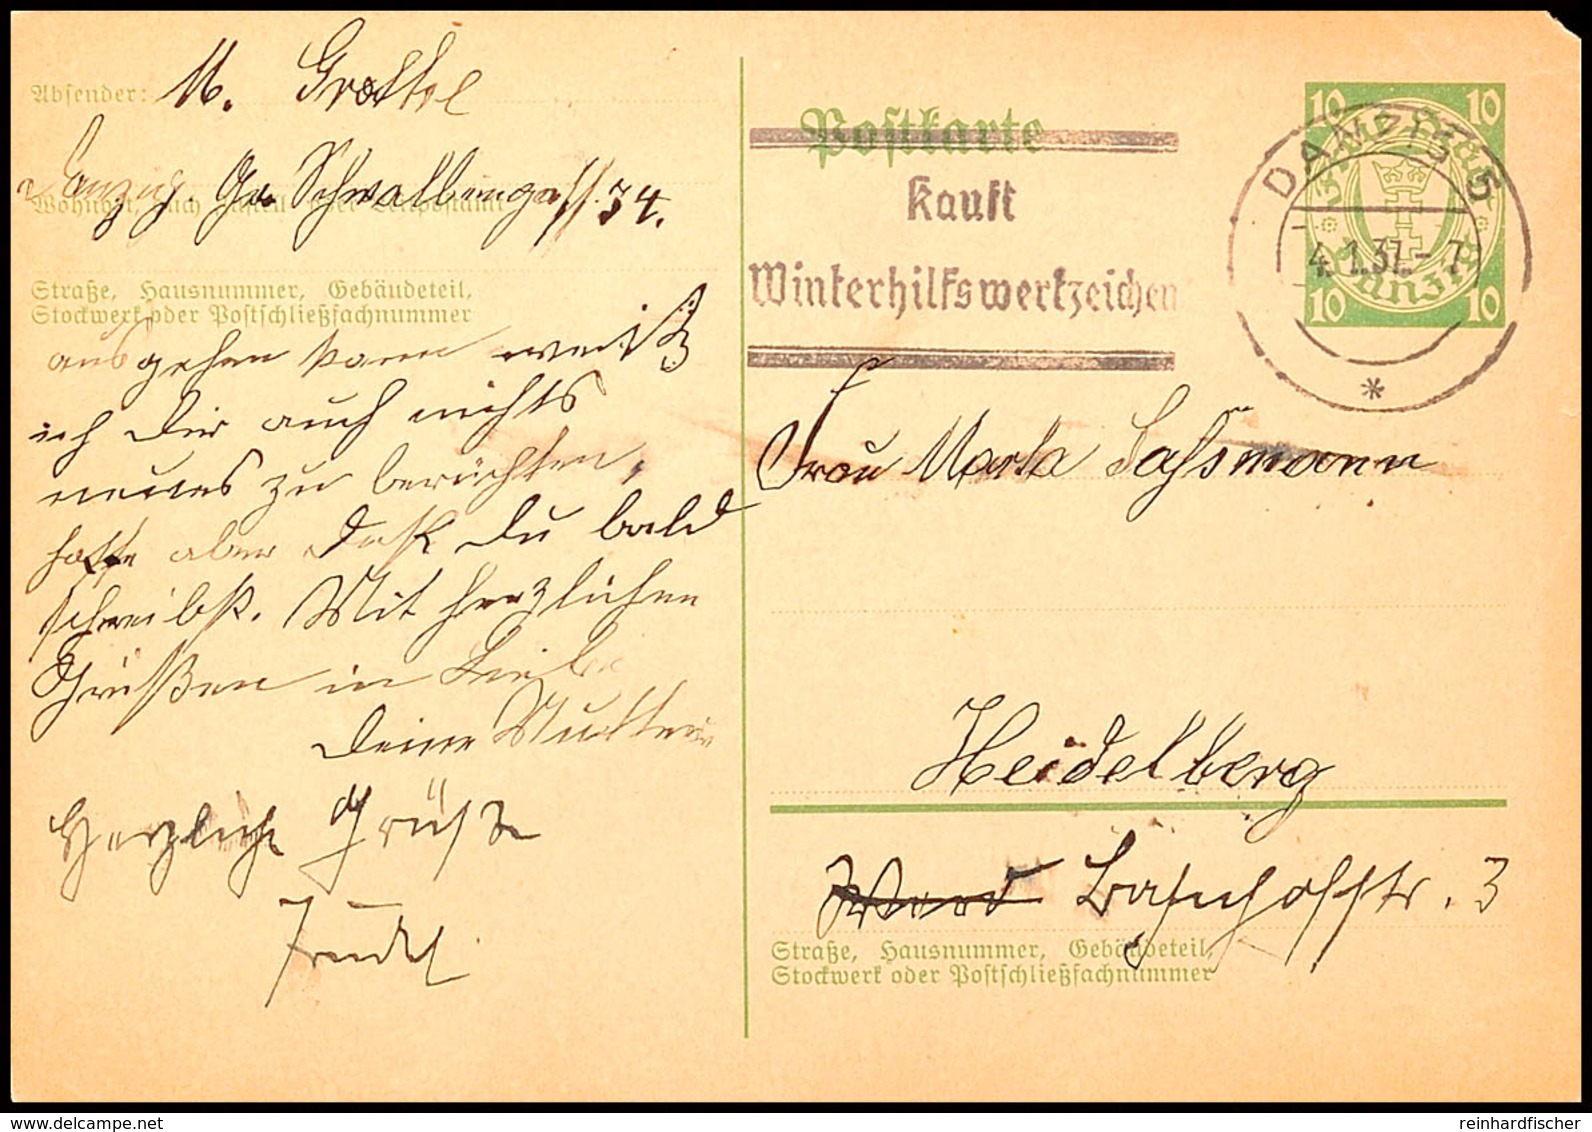 Absender: M. Grottel
Danzig. Gr. Schwalbengasse 34.
Wohnort, auch Zustell- oder Leitpostamt
Straße, Hausnummer, Gebäudeteil,
Stockwerk oder Postschließfachnummer
ausgehen kann weiß
ich Dir auch nichts
neues zu berichten,
hoffe aber daß Du bald
schreibst. Mit herzlichen
Grüßen in Liebe
Deine Mutter
Herzliche Grüße
Trudel
Postkarte
Kauft
Winterhilfswerkzeichen
10 10
Freie Stadt
Danzig
10 10
DANZIG 5
4.1.37.-7
*
Frau Marta Sassmann
Heidelberg
Bahnhofstr. 3
Straße, Hausnummer, Gebäudeteil,
Stockwerk oder Postschließfachnummer
reinhardfischer